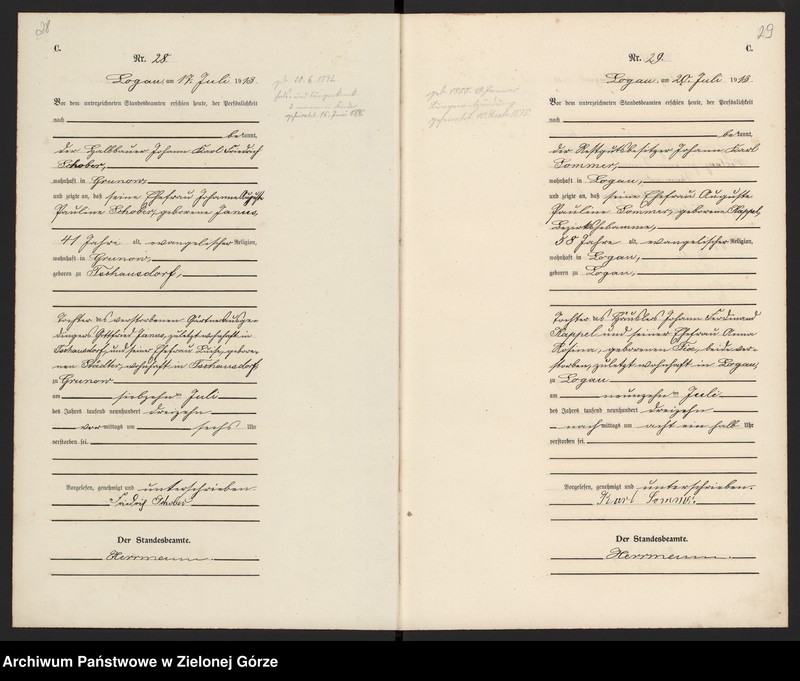 28
C.
Nr. 28.
Logau, am 17. Juli 1913.
Vor dem unterzeichneten Standesbeamten erschien heute, der Persönlichkeit
nach
bekannt,
der Halbbauer Johann Karl Friedrich
Schober,
wohnhaft in Grunow,
und zeigte an, daß seine Ehefrau Johanne Auguste
Pauline Schober, geborene Janus,
41 Jahre alt, evangelischer Religion,
wohnhaft in Grunow,
geboren zu Tschausdorf,
Tochter des verstorbenen Gärtnerauszüg-
lers Gottfried Janus, zuletzt wohnhaft in
Tschausdorf, und seiner Ehefrau Luise, gebore-
nen Städter, wohnhaft in Tschausdorf
zu Grunow
am siebzehnten Juli
des Jahres tausend neunhundert dreizehn
vormittags um sechs Uhr
verstorben sei.
Vorgelesen, genehmigt und unterschrieben.
Friedrich Schober
Der Standesbeamte.
Herrmann.
29
C.
Nr. 29.
Logau, am 20. Juli 1913.
Vor dem unterzeichneten Standesbeamten erschien heute, der Persönlichkeit
nach
bekannt,
der Restgutsbesitzer Johann Karl
Sommer,
wohnhaft in Logau,
und zeigte an, daß seine Ehefrau Auguste
Pauline Sommer, geborene Kappel,
Bezirkshebamme,
58 Jahre alt, evangelischer Religion,
wohnhaft in Logau,
geboren zu Logau,
Tochter des Häuslers Johann Ferdinand
Kappel und seiner Ehefrau Anna
Rosina, geborenen beide ver-
storben, zuletzt wohnhaft in Logau,
zu Logau
am neunzehnten Juli
des Jahres tausend neunhundert dreizehn
nachmittags um acht ein halb Uhr
verstorben sei.
Vorgelesen, genehmigt und unterschrieben.
Karl Sommer.
Der Standesbeamte.
Herrmann.
Archiwum Państwowe w Zielonej Górze